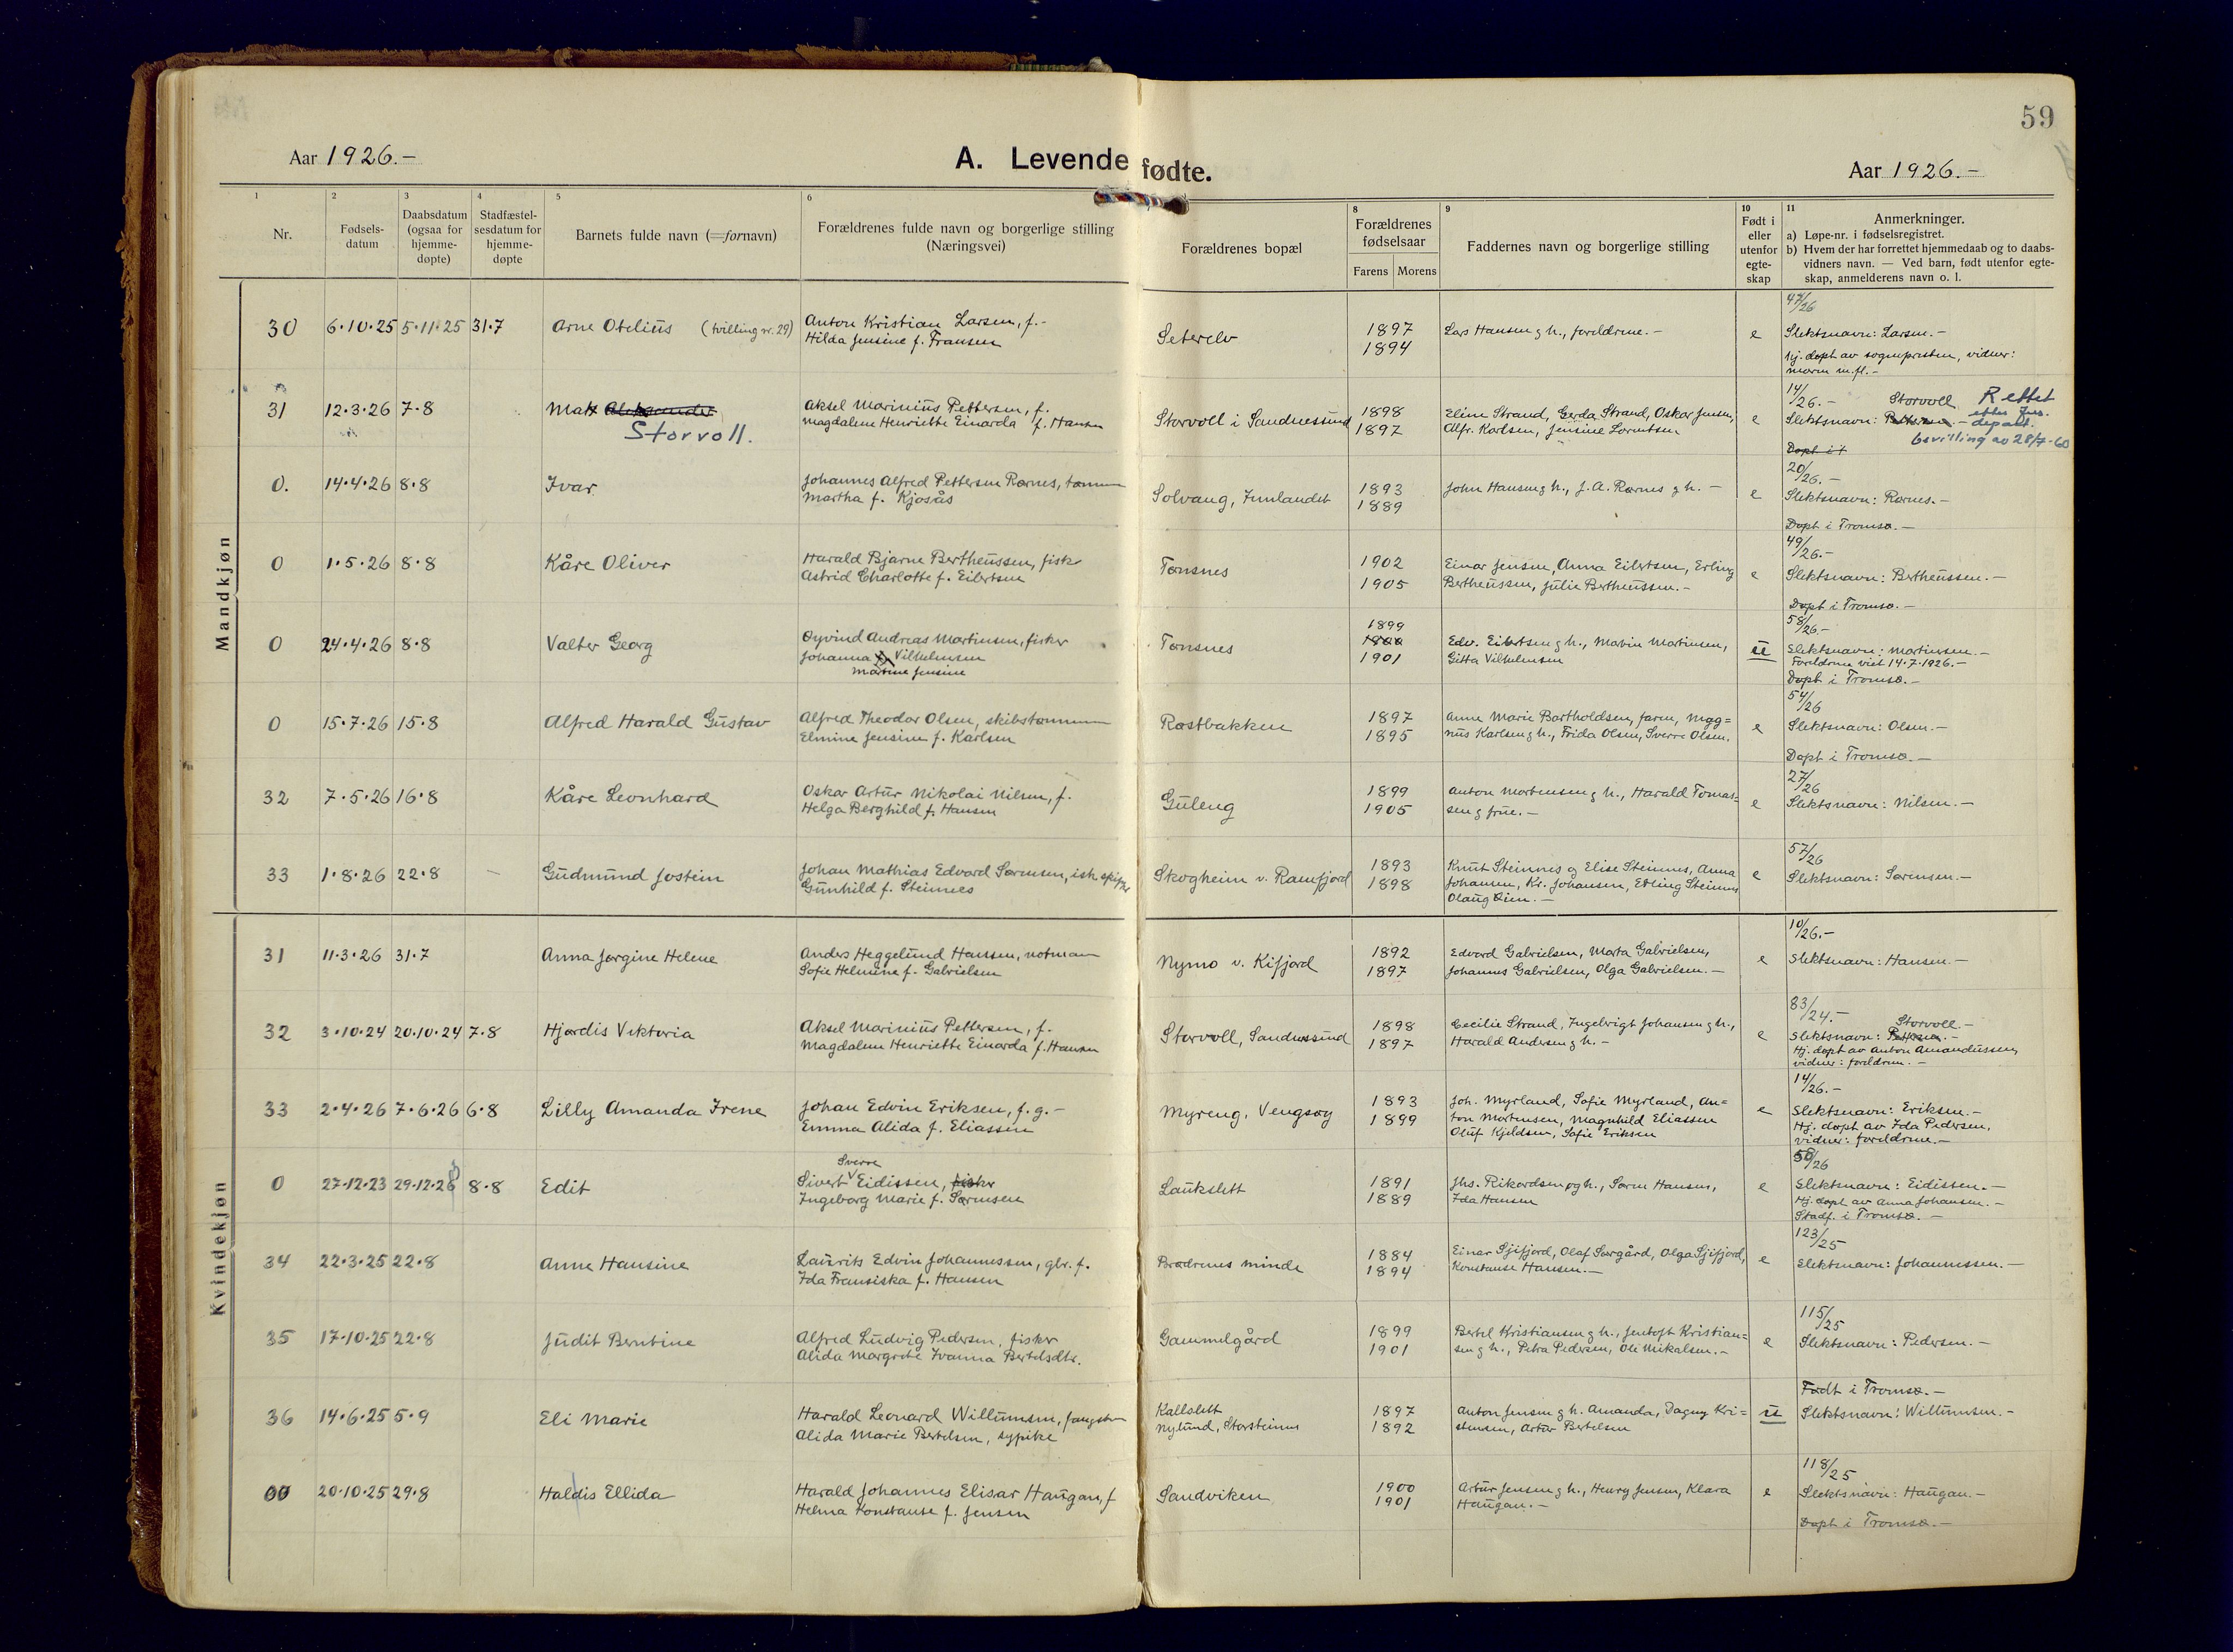 59
Aar 1926.-
A. Levende fødte.
Aar 1926.-
1
2
3
4
5
6
8
9
10
11
Nr.
Fødsels-
datum
Daabsdatum
(ogsaa for
hjemme-
døpte)
Stadfæstel-
sesdatum for
hjemme-
døpte
Barnets fulde navn (=fornavn)
Forældrenes fulde navn og borgerlige stilling
(Næringsvei)
Forældrenes bopæl
Forældrenes
fødselsaar
Farens Morens
Faddernes navn og borgerlige stilling
Født i
eller
utenfor
egte-
skap
Anmerkninger.
a) Løpe-nr. i fødselsregistret.
b) Hvem der har forrettet hjemmedaab og to daabs-
vidners navn. — Ved barn, født utenfor egte-
skap, anmelderens navn o. l.
Mandkjøn
30 6.10.25 5.11.25 31.7 Arne Otelius (tvilling nr. 29)
Anton Kristian Larsen, f.-
Hilda Jensine f. Fransen
Seterelv
1897
1894
Lars Hansen g h., foreldrene.-
e
47/26
Slektsnavn: Larsen.-
Hj. døpt av sognepresten, vidner:
moren m.fl.-
31 12.3.26 7.8 Mat Aleksander
Storvoll.
Aksel Marinius Pettersen, f.
Magdalene Henriette Einarda f. Hansen
Storvoll i Sandnessund
1898
1897
Eline Strand, Gerda Strand, Oskar Jensen,
Alfr. Karlsen, Jensine Lorentsen
e
14/26.- Storvoll Rettet
Slektsnavn: Pettersen.- etter Jus.
depart.
bevilling av 28/7-60
Døpt i t
0. 14.4.26 8.8 Ivar
Johannes Alfred Pettersen Rørnes, tømm
Martha f. Kjosås
Solvang, Innlandet
1893
1889
John Hansen g h., J. A. Rørnes g h.-
e
20/26.-
Slektsnavn: Rørnes.-
Døpt i Tromsø.-
0 1.5.26 8.8 Kåre Oliver
Harald Bjarne Bertheussen, fisk
Astrid Charlotte f. Eilertsen
Tønsnes
1902
1905
Einar Jensen, Anna Eilertsen, Erling
Bertheussen, Julie Bertheussen.-
e
49/26.-
Slektsnavn: Bertheussen.-
Døpt i Tromsø.-
0 24.4.26 8.8 Valter Georg
Øyvind Andreas Martinsen, fisker
Johanna f. Vilhelmsen
Martine Jensine
Tønsnes
1899
1900
1901
Edv. Eilertsen g h., Marin Martinsen,
Gitta Vilhelmsen
u
58/26.-
Slektsnavn: Martinsen.-
Foreldrene viet 14.7.1926.-
Døpt i Tromsø.-
0 15.7.26 15.8 Alfred Harald Gustav
Alfred Theodor Olsen, skibstømmerm
Elmine Jensine f. Karlsen
Røstbakken
1897
1895
Anne Marie Bartholdsen, faren, Mag=
nus Karlsen g h., Frida Olsen, Sverre Olsen.
e
54/26
Slektsnavn: Olsen.-
Døpt i Tromsø.-
32 7.5.26 16.8 Kåre Leonhard
Oskar Artur Nikolai Nilsen, f.
Helga Berghild f. Hansen
Guleng
1899
1905
Anton Mortensen g h., Harald Tomas=
sen g frue.-
e
27/26
Slektsnavn: Nilsen.-
33 1.8.26 22.8 - Gudmund Jostein
Johan Mathias Edvard Sørensen, ish. skipper
Gunhild f. Steinnes
Skogheim v. Ramfjord
1893
1898
Knut Steinnes og Elise Steinnes, Anna
Johansen, Kr. Johansen, Erling Steinnes
Olaug Lien.-
e
57/26
Slektsnavn: Sørensen.-
Kvindekjøn
31 11.3.26 31.7 Anna Jørgine Helene
Anders Heggelund Hansen, notmann
Sofie Helmine f. Gabrielsen
Nymo v. Kifjord
1892
1897
Edvard Gabrielsen, Marta Gabrielsen,
Johannes Gabrielsen, Olga Gabrielsen.-
e
10/26.-
Slektsnavn: Hansen.-
32 3.10.24 20.10.24 7.8 Hjørdis Viktoria
Aksel Marinius Pettersen, f.
Magdalene Henriette Einarda f. Hansen
Storvoll, Sandnessund
1898
1897
Cecilie Strand, Ingebrigt Johansen g h.,
Harald Andersen g h.-
e
83/24.- Storvoll.-
Slektsnavn: Pettersen.-
Hj. døpt av Anton Amandussen,
vidner: foreldrene.-
33 2.4.26 7.6.26 6.8 Lilly Amanda Irene
Johan Edvin Eriksen, f. g.-
Emma Alida f. Eliassen
Myreng, Vengsøy
1893
1899
Joh. Myrland, Sofie Myrland, An=
ton Mortensen, Magnhild Eliassen
Oluf Kjeldsen, Sofie Eriksen
e
14/26.-
Slektsnavn: Eriksen.-
Hj. døpt av Ida Pedersen,
vidner: foreldrene.-
0 27.12.23 29.12.23 8.8 Edit
Sverre
Sivert Eidissen, fisker
Ingeborg Marie f. Sørensen
Laukslett
1891
1889
Jhs. Rikardsen og h., Søren Hansen,
Ida Hansen
e
50/26
Slektsnavn: Eidissen.-
Hj. døpt av Anna Johansen.-
Stadf. i Tromsø.-
34 22.3.25 22.8 Anne Hansine
Laurits Edvin Johannessen, gbr. f.
Ida Fransiska f. Hansen
Brødrenes minde
1884
1894
Einar Sjifjord, Olaf Sørgård, Olga Sjifjord,
Konstanse Hansen.-
e
123/25
Slektsnavn: Johannessen.-
35 17.10.25 22.8 Judit Berntine
Alfred Ludvig Pedersen, fisker
Alida Margrete Ivanna Bertelsdtr.
Gammelgård
1899
1901
Bertel Kristiansen g h., Jentoft Kristian=
sen g h., Petra Pedersen, Ole Mikalsen.-
e
115/25
Slektsnavn: Pedersen.-
36 14.6.25 5.9 Eli Marie
Harald Leonard Willumsen, fangstm
Alida Marie Bertelsen, sypike
Kallslett
Nylund, Storsteinnes
1897
1892
Anton Jensen g h. Amanda, Dagny Kri=
stensen, Artur Bertelsen
u
Født i Tromsø.-
Slektsnavn: Willumsen.-
00 20.10.25 29.8 Haldis Ellida
Harald Johannes Elisar Haugan, f
Helma Konstanse f. Jensen
Sandviken
1900
1901
Artur Jensen g h., Henry Jensen, Klara
Haugan.-
e
118/25
Slektsnavn: Haugan.-
Døpt i Tromsø.-